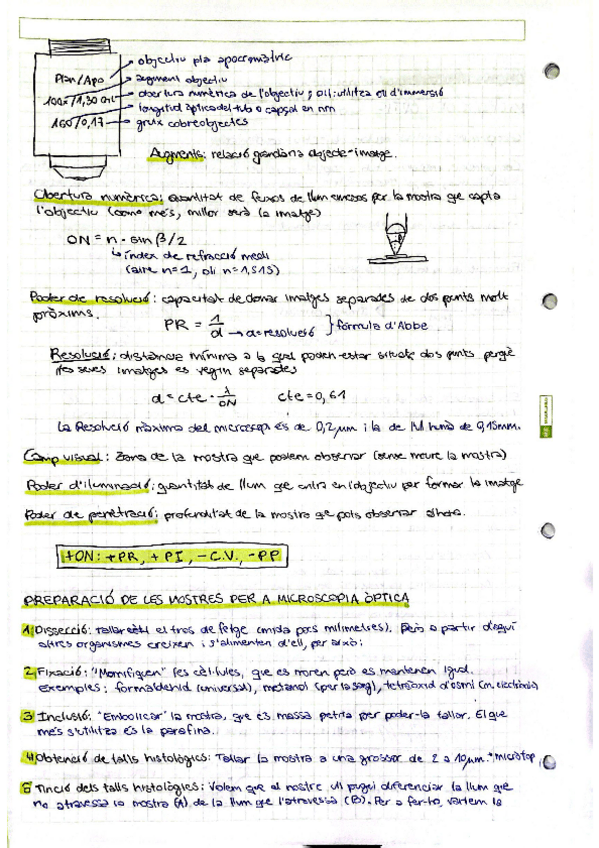 Plan/Apo → objectiu pla apocromàtic
100x/1,30 Oil → augment objectiu
→ obertura numèrica de l'objectiu i oli: utilitza oli d'immersió
160/0,17 → longitud òptica del tub o capçal en mm
→ gruix cobreobjectes
Augments: relació grandària objecte-imatge.
Obertura numèrica: quantitat de feixos de llum emesos per la mostra que capta
l'objectiu (com més, millor serà la imatge)
ON = n · sin β/2
índex de refracció medi
(aire n=1, oli n=1,515)
β
Poder de resolució: capacitat de donar imatges separades de dos punts molt
pròxims.
PR = 1/d → d=resolució } fórmula d'Abbe
Resolució: distància mínima a la qual poden estar situats dos punts perquè
les seves imatges es vegin separades
d = cte · λ/ON cte=0,61
La Resolució màxima del microscopi és de 0,2μm i la de l'ull humà de 0,15mm.
Camp visual: zona de la mostra que podem observar (sense moure la mostra)
Poder d'iluminació: quantitat de llum que entra en l'objectiu per formar la imatge
Poder de penetració: profunditat de la mostra que pots observar alhora.
+ON: +PR, +PI, -C.V., -PP
PREPARACIÓ DE LES MOSTRES PER A MICROSCOPIA ÒPTICA
1 Dissecció: Tallar el tros de fetge (mida pocs milímetres). Però a partir d'aquí
altres organismes creixen i s'alimenten d'ell, per això:
2 Fixació: "Momifiquen" les cèl·lules, que es moren però es mantenen igual.
exemples: formaldehid (universal), metanol (per la sang), tetraòxid d'osmi (m. electrònic)
3 Inclusió: "Embolicar" la mostra, que és massa petita per poder-la tallar. El que
més s'utilitza és la parafina.
4 Obtenció de talls histològics: Tallar la mostra a una grossor de 2 a 10μm.
5 Tinció dels talls histològics: Volem que el nostre ull pugui diferenciar la llum que
no atravessa la mostra (A) de la llum que l'atravessa (B). Per a fer-ho, variem la